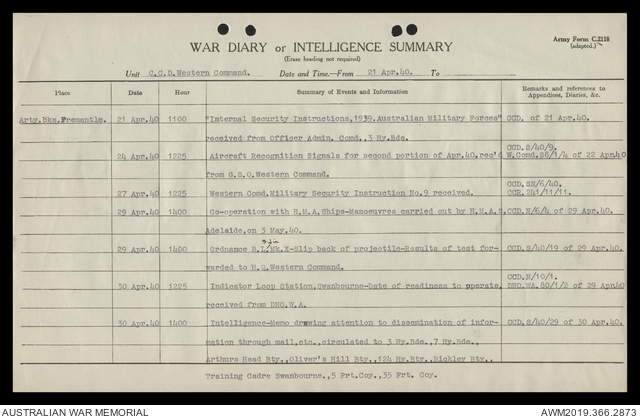 Army Form C.2118
(adapted.)
WAR DIARY or INTELLIGENCE SUMMARY
(Erase heading not required)
Unit C.C.D.Western Command. Date and Time.—From 21 Apr.40. To
Place Date Hour Summary of Events and Information Remarks and references to Appendices, Diaries, &c.
Arty.Bks.Fremantle. 21 Apr.40 1100 "Internal Security Instructions,1939.Australian Military Forces" CCD. of 21 Apr.40.
received from Officer Admin. Comd.,3 Hy.Bde.
CCD.S/40/9.
24 Apr.40 1225 Aircraft Recognition Signals for second portion of Apr.40.rec'd W.Comd.S8/1/4 of 22 Apr40
from G.S.O.Western Command.
CCD.SM/6/40.
27 Apr.40 1225 Western Comd.Military Security Instruction No.9 received. CCR.241/11/11.
29 Apr.40 1400 Co-operation with H.M.A.Ships-Manoeuvres carried out by H.M.A.S. CCD.N/6/4 of 29 Apr.40.
Adelaide,on 3 May.40.
29 Apr.40 1400 Ordnance B.L. Mk.X-Slip back of projectile-Results of test for- CCD.S/40/19 of 29 Apr.40.
warded to H.Q.Western Command.
CCD.N/10/1.
30 Apr.40 1225 Indicator Loop Station,Swanbourne-Date of readiness to operate, DNO.WA.80/1/2 of 29 Apr40
received from DNO.W.A.
30 Apr.40 1400 Intelligence-Memo drawing attention to dissemination of infor- CCD.S/40/29 of 30 Apr.40.
mation through mail,etc.,circulated to 3 Hy.Bde.,7 Hy.Bde.,
Arthurs Head Bty.,Oliver's Hill Bty.,124 Hy.Bty.,Bickley Bty.,
Training Cadre Swanbourne.,5 Frt.Coy.,35 Frt. Coy.
AUSTRALIAN WAR MEMORIAL AWM2019.366.2873